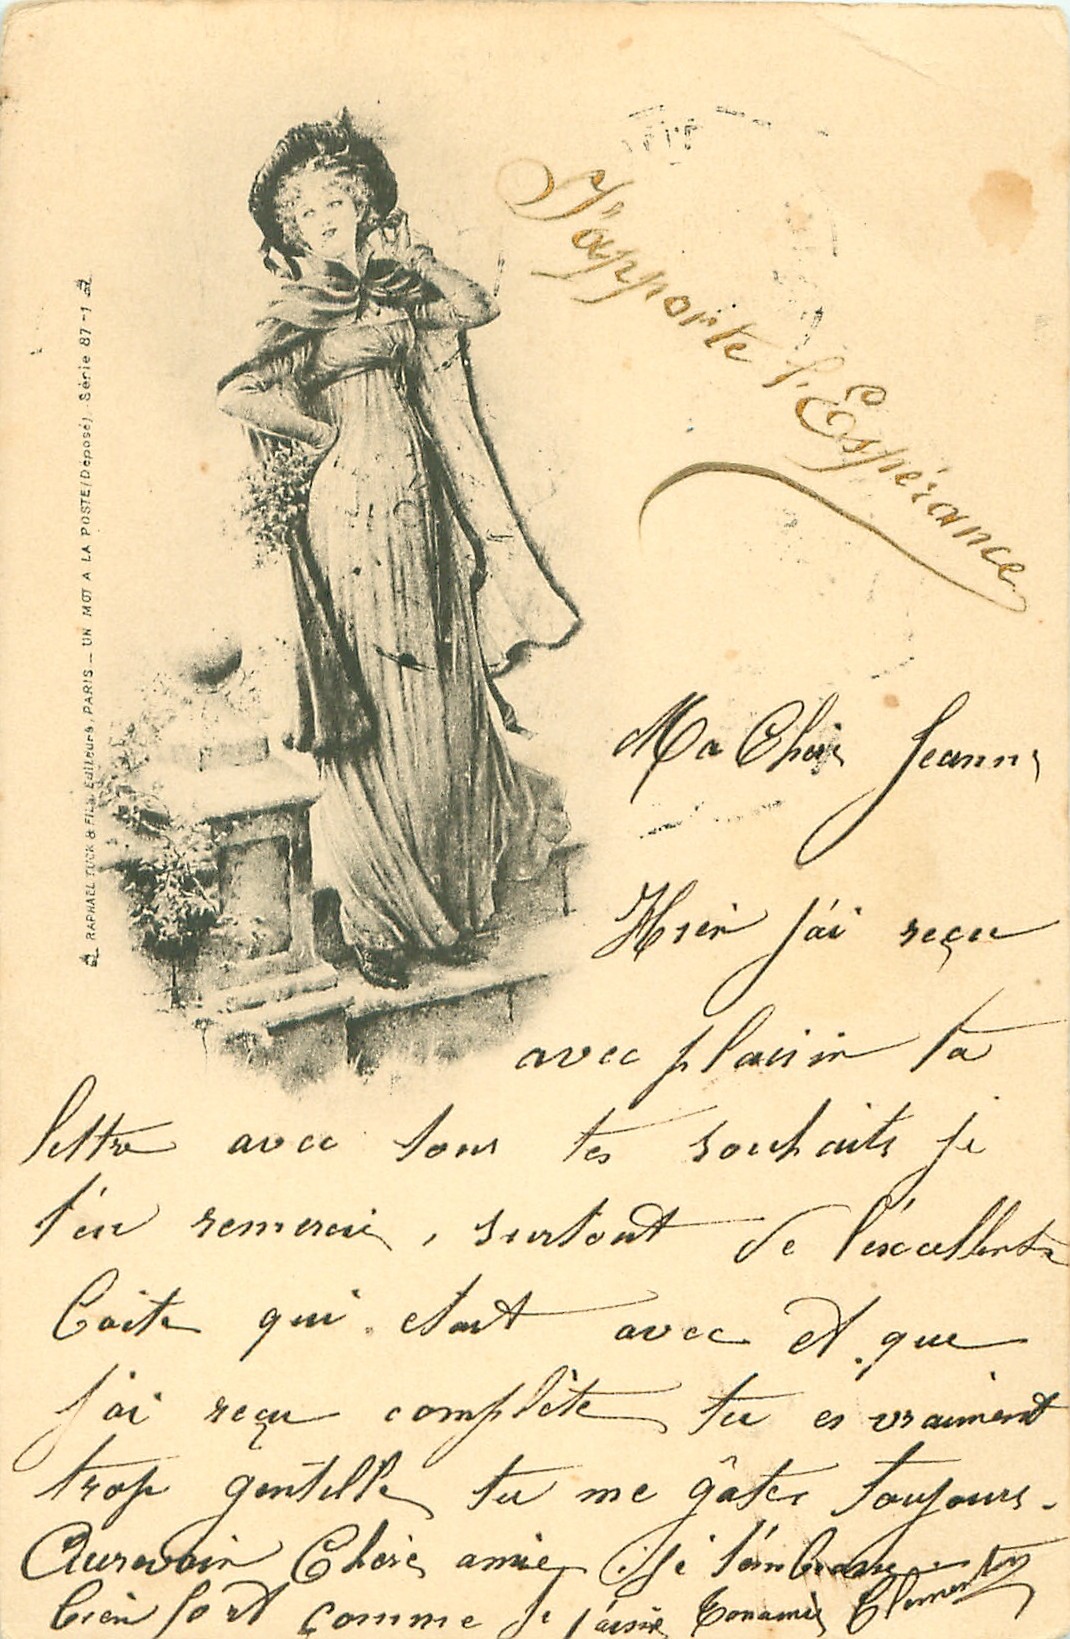 J'apporte l'Espérance
RAPHAEL TUCK & FILS, Editeurs, PARIS _ UN MOT A LA POSTE (Déposé) Série 87-1
Ma Chère Jeanne
Hier j'ai reçu
avec plaisir ta
lettre avec tous tes souhaits je
t'en remercie, surtout de l'excellente
boite qui etait avec et que
j'ai reçu complète tu es vraiment
trop gentille tu me gâtes toujours.
Aurevoir Chère amie je t'embrasse
bien fort comme je t'aime Tonamie Clementine